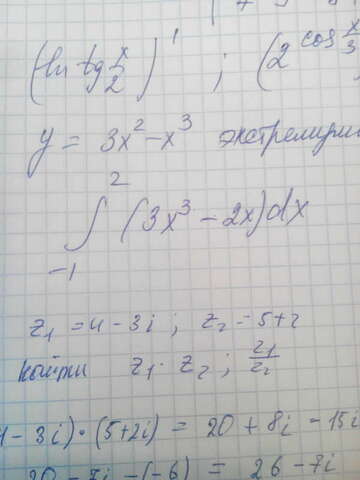 (ln tg x/2)' ; (2^cos x/3
y = 3x² - x³ экстремум
∫₋₁² (3x³ - 2x)dx
z₁ = 4 - 3i ; z₂ = 5+2
найти z₁ · z₂ ; z₁/z₂
4 - 3i) · (5+2i) = 20 + 8i - 15i
20 - 7i - (-6) = 26 - 7i